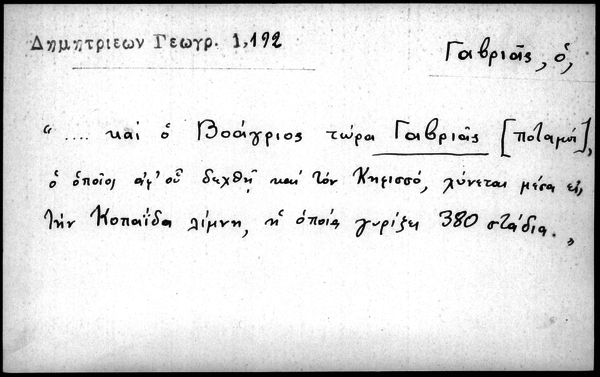 Δημητριεων Γεωγρ. 1,192
Γαβριᾶς, ὁ,
".... καὶ ὁ Βοάγριος τώρα Γαβριᾶς [ποταμὸς],
ὁ ὁποῖος ἀφ' οὗ δεχθῇ καὶ τὸν Κηφισσό, χύνεται μέσα εἰς
τὴν Κοπαΐδα λίμνη, ἡ ὁποία γυρίζει 380 στάδια."